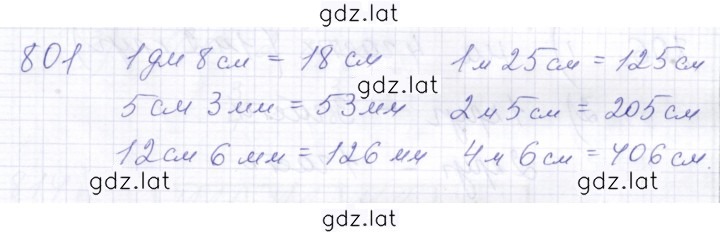 gdz.lat
801 1 дм 8 см = 18 см 1 м 25 см = 125 см
gdz.lat
5 см 3 мм = 53 мм 2 м 5 см = 205 см
12 см 6 мм = 126 мм 4 м 6 см = 406 см.
gdz.lat gdz.lat
gdz.lat